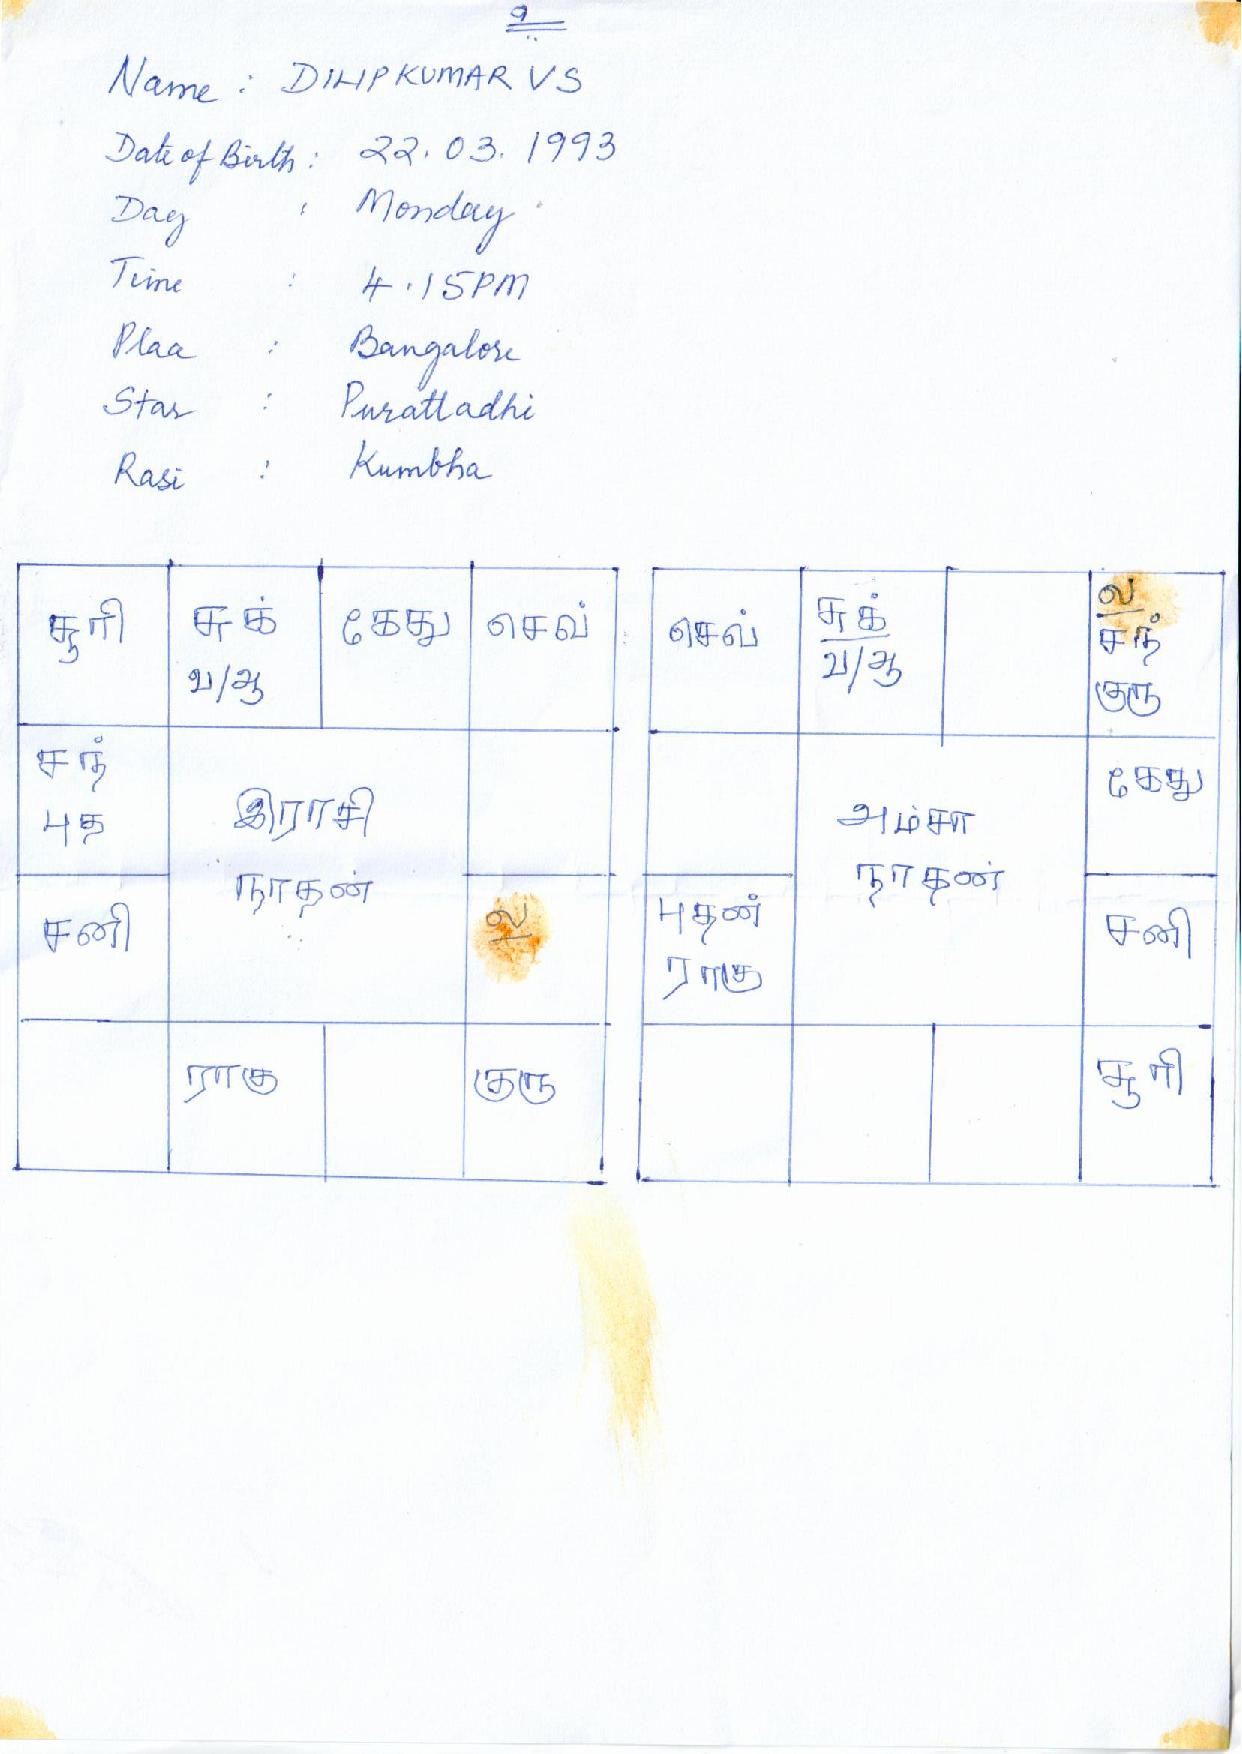 உ
Name : DILIPKUMAR VS
Date of Birth : 22.03.1993
Day : Monday
Time : 4.15PM
Place : Bangalore
Star : Purattadhi
Rasi : Kumbha
சூரி
சுக்
வ/ஆ
கேது
செவ்
சந்
புத
இராசி
நாதன்
சனி
ல
ராகு
குரு
செவ்
சுக்
வ/ஆ
ல
சந்
குரு
அம்சா
நாதன்
கேது
புதன்
ராகு
சனி
சூரி